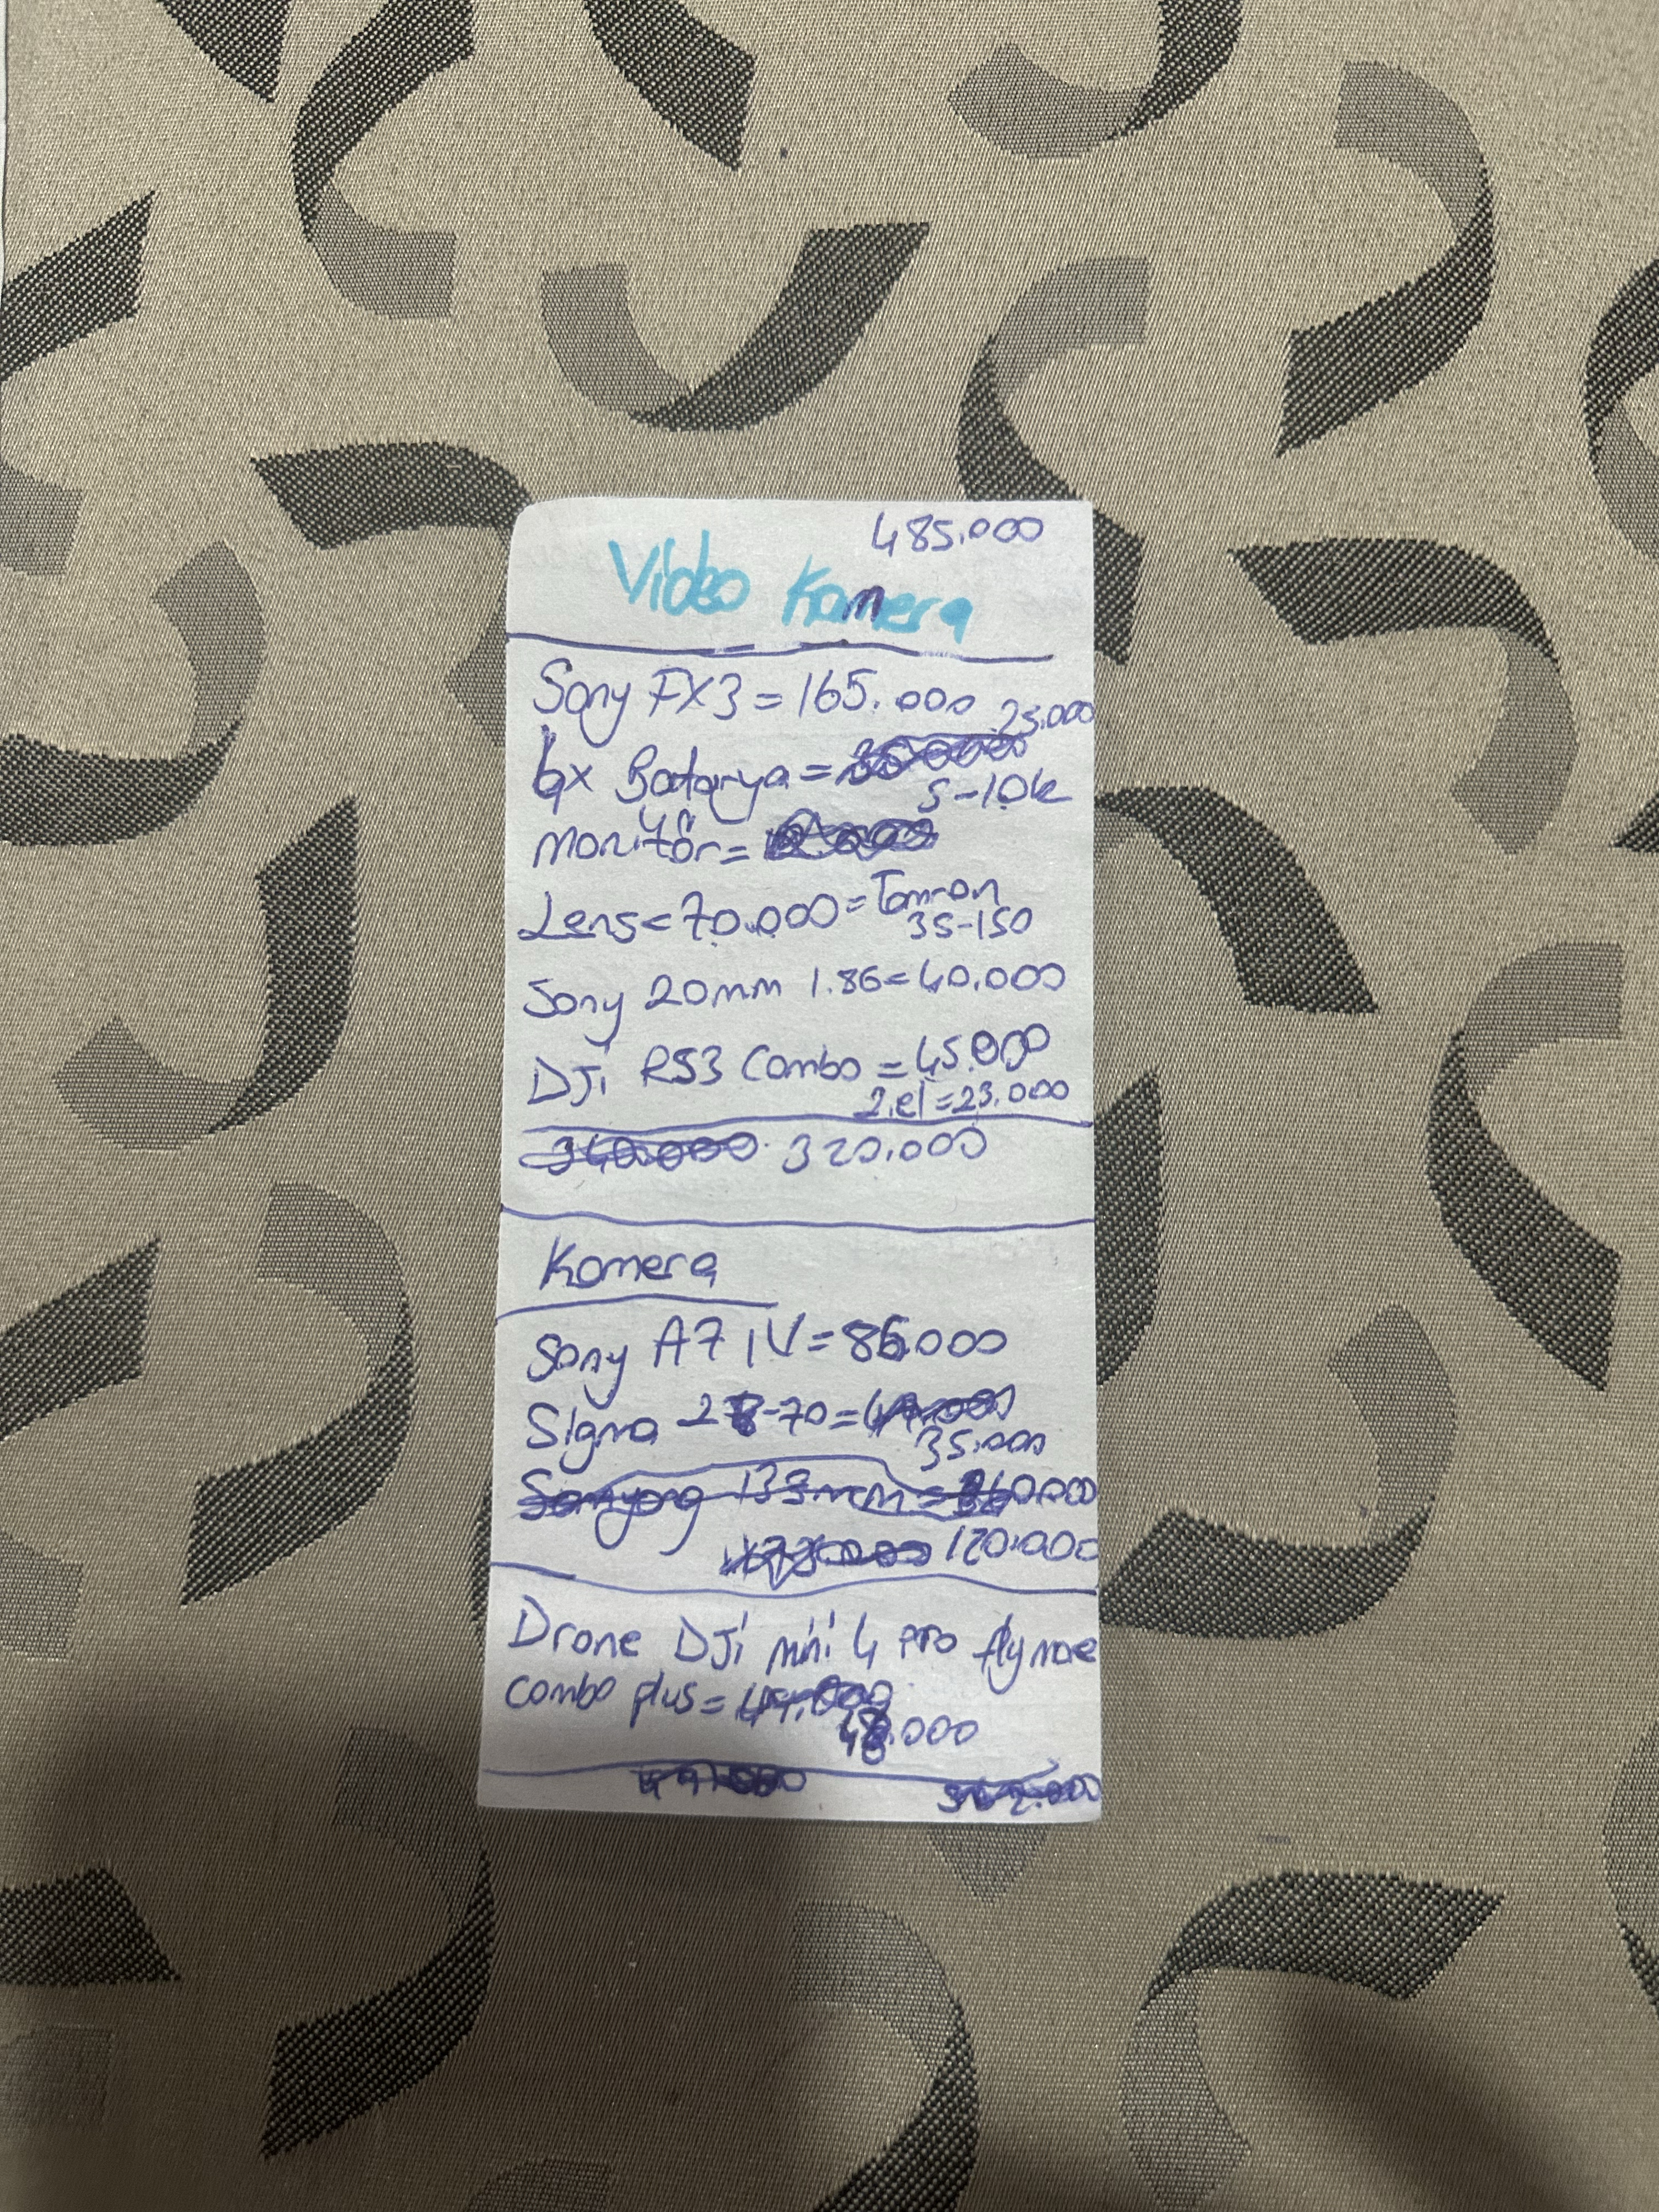 485.000
Video Kamera
Sony FX3 = 165.000
25.000
6x Batarya =
5-10k
monitör =
Lens = 70.000 = Tamron
35-150
Sony 20mm 1.8G = 40.000
DJi RS3 Combo = 45.000
2.el = 23.000
340.000 320.000
Kamera
Sony A7 IV = 86.000
Sigma 28-70 =
35.000
Samyang 135mm =
120.000
Drone DJi mini 4 pro fly more
combo plus = 49.000
48.000